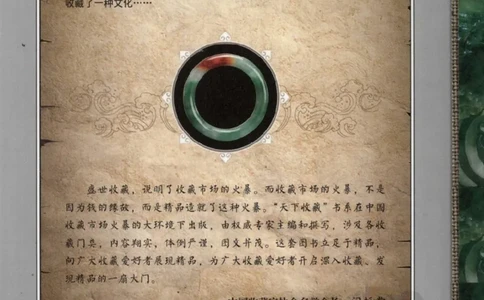 收藏了一种文化……
盛世收藏，说明了收藏市场的火暴。而收藏市场的火暴，不是
因为钱的缘故，而是精品造就了这种火暴。“天下收藏”书系在中国
收藏市场火暴的大环境下出版，由权威专家主编和撰写，涉及各收
藏门类，内容翔实，体例严谨，图文并茂。这套图书立足于精品，
向广大收藏爱好者展现精品，为广大收藏爱好者开启深入收藏、发
现精品的一扇大门。